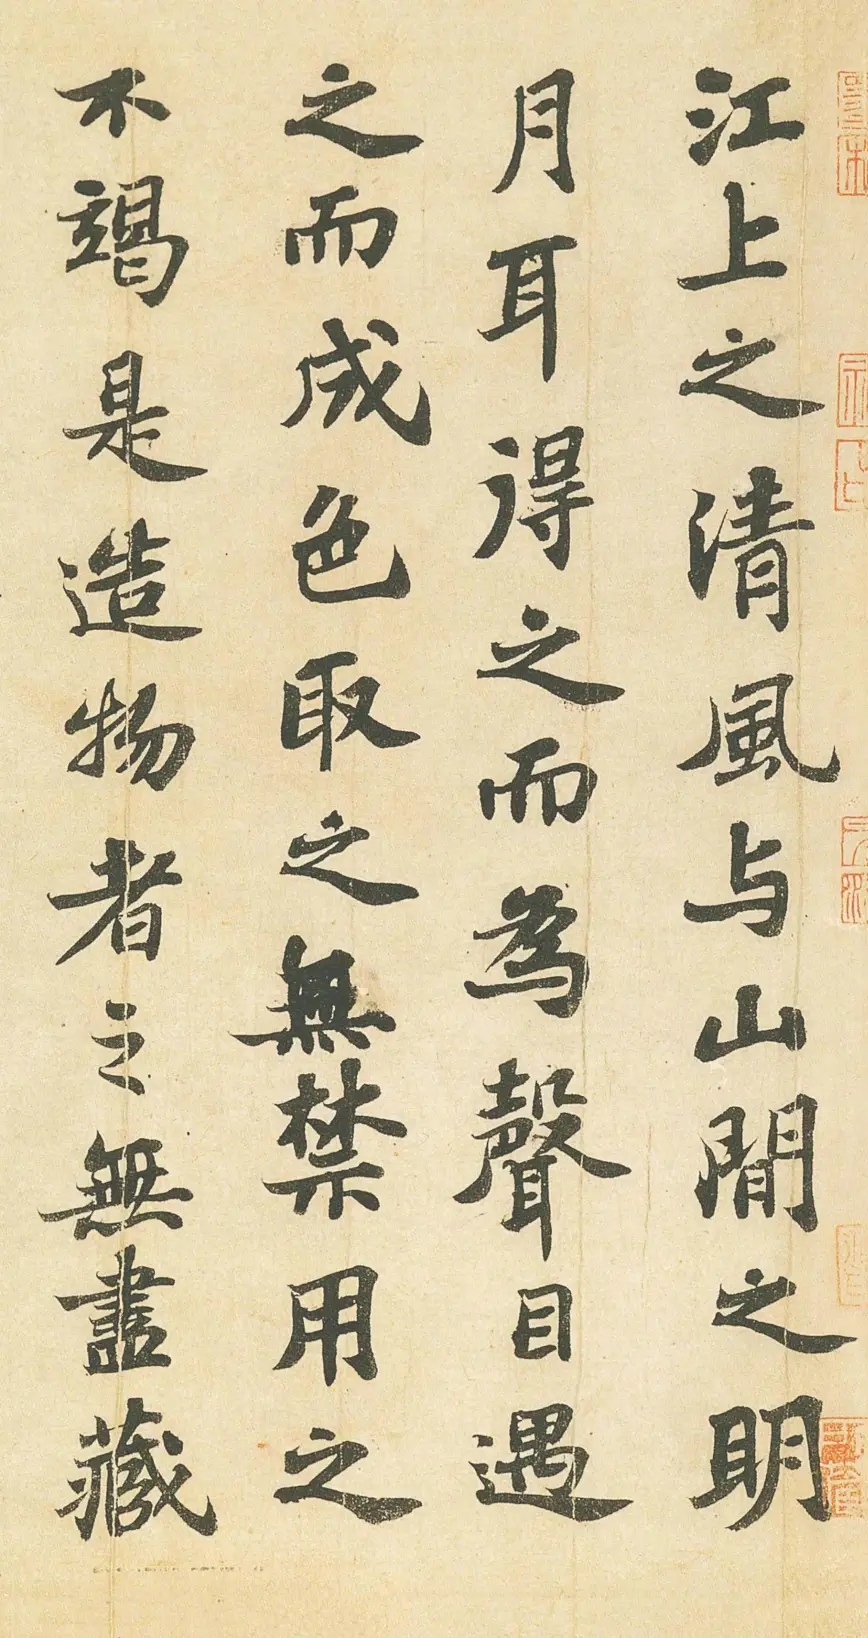 江上之清風与山間之明
月耳得之而為聲目遇
之而成色取之無禁用之
不竭是造物者之無盡藏